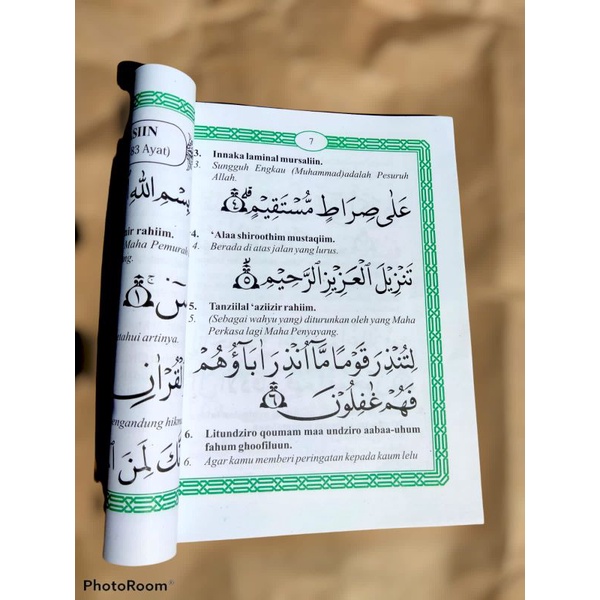 SIIN
83 Ayat)
بِسْمِ اللهِ
ir rahiim.
Maha Pemurah
ng.
١
ntahui artinya.
الْقُرْاٰنِ
engandung hikm
لَمِنَ
7
3. Innaka laminal mursaliin.
3. Sungguh Engkau (Muhammad)adalah Pesuruh
Allah.
عَلٰى صِرَاطٍ مُّسْتَقِيْمٍۗ ٤
4. ‘Alaa shiroothim mustaqiim.
4. Berada di atas jalan yang lurus.
تَنْزِيْلَ الْعَزِيْزِ الرَّحِيْمِۙ ٥
5. Tanziilal ‘aziizir rahiim.
5. (Sebagai wahyu yang) diturunkan oleh yang Maha
Perkasa lagi Maha Penyayang.
لِتُنْذِرَ قَوْمًا مَّآ اُنْذِرَ اٰبَاۤؤُهُمْ
فَهُمْ غٰفِلُوْنَ ٦
6. Litundziro qoumam maa undziro aabaa-uhum
fahum ghoofiluun.
6. Agar kamu memberi peringatan kepada kaum lelu
PhotoRoom®